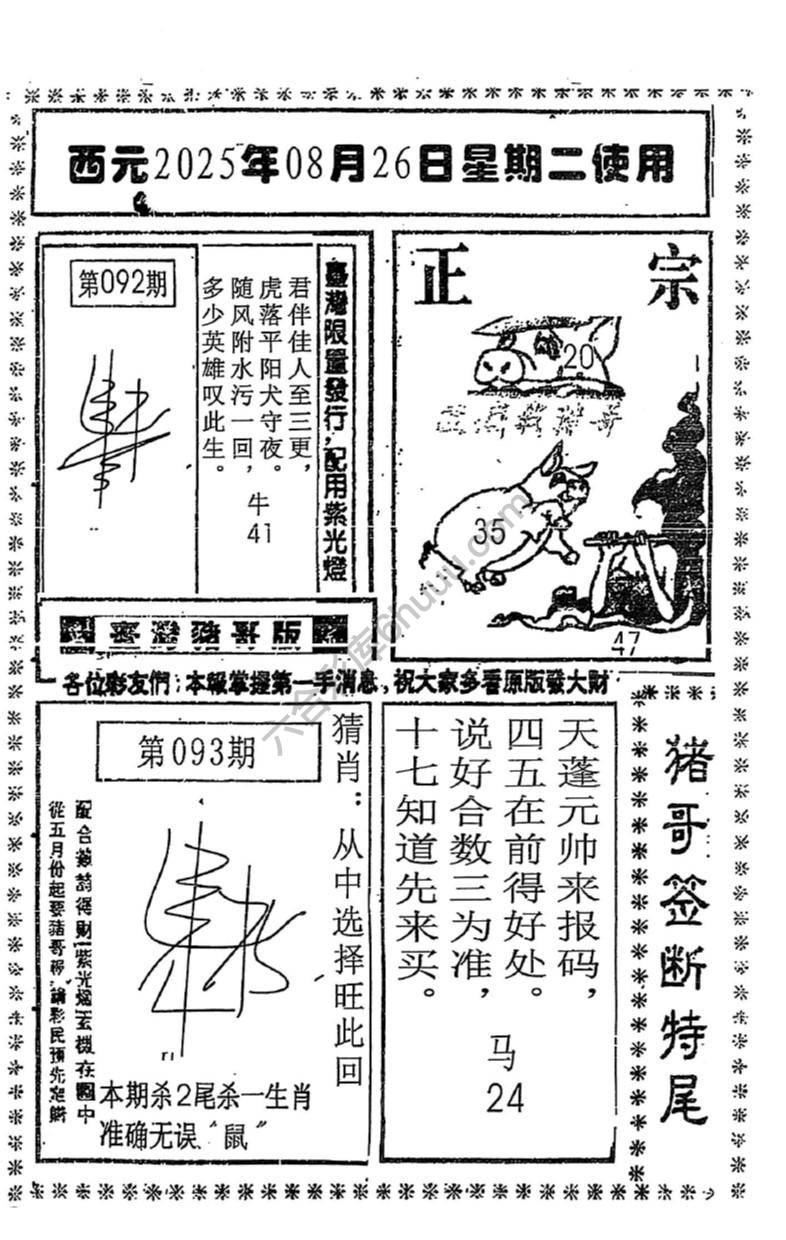 西元2025年08月26日星期二使用
第092期
臺灣限量發行,配用紫光燈
君伴佳人至三更,
虎落平阳犬守夜。
随风附水污一回,
多少英雄叹此生。
牛
41
正宗
20
35
47
臺灣豬哥版
各位彩友們:本報掌握第一手消息,祝大家多看原版發大財
第093期
猜肖:从中选择旺此回
從五月份起要豬哥
本期杀2尾杀一生肖
准确无误“鼠”
天蓬元帅来报码,
四五在前得好处。
说好合数三为准,
十七知道先来买。
马
24
猪哥签断特尾
六合彩库6huuu.com